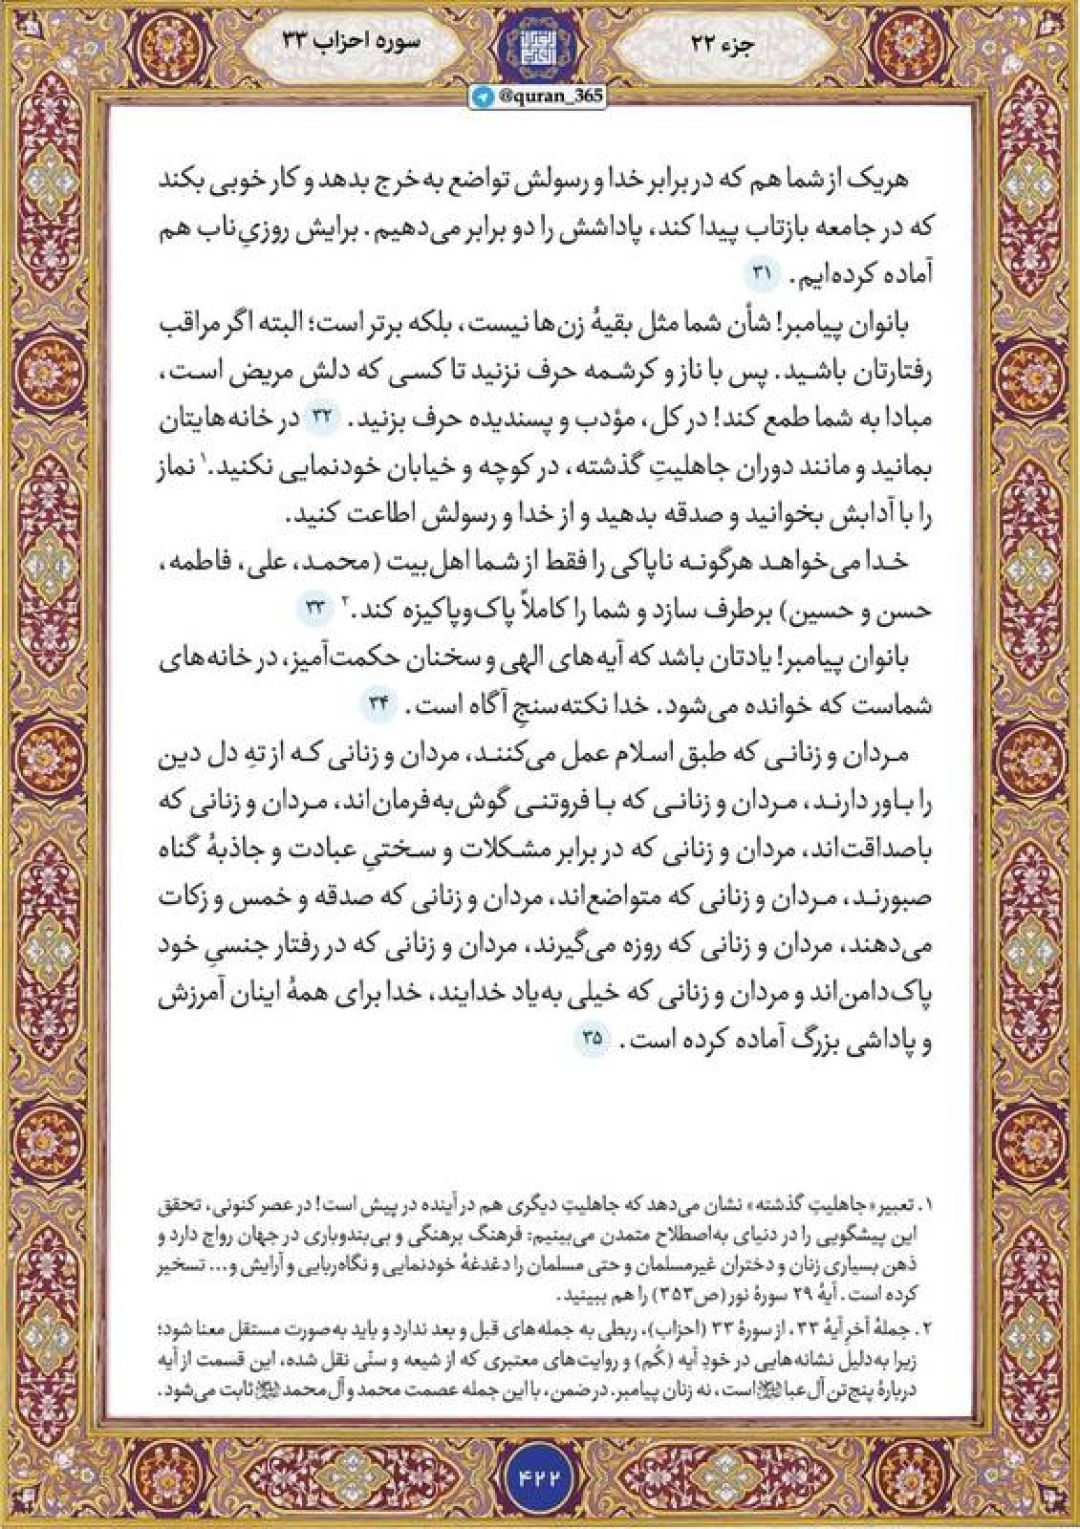 جزء ۲۲
سوره احزاب ۳۳
@quran_365
هریک از شما هم که در برابر خدا و رسولش تواضع به خرج بدهد و کار خوبی بکند
که در جامعه بازتاب پیدا کند، پاداشش را دو برابر می‌دهیم. برایش روزیِ ناب هم
آماده کرده‌ایم. ۳۱
بانوان پیامبر! شأن شما مثل بقیهٔ زن‌ها نیست، بلکه برتر است؛ البته اگر مراقب
رفتارتان باشید. پس با ناز و کرشمه حرف نزنید تا کسی که دلش مریض است،
مبادا به شما طمع کند! در کل، مؤدب و پسندیده حرف بزنید. ۳۲ در خانه‌هایتان
بمانید و مانند دوران جاهلیتِ گذشته، در کوچه و خیابان خودنمایی نکنید.۱ نماز
را با آدابش بخوانید و صدقه بدهید و از خدا و رسولش اطاعت کنید.
خدا می‌خواهد هرگونه ناپاکی را فقط از شما اهل‌بیت (محمد، علی، فاطمه،
حسن و حسین) برطرف سازد و شما را کاملاً پاک‌وپاکیزه کند.۲ ۳۳
بانوان پیامبر! یادتان باشد که آیه‌های الهی و سخنان حکمت‌آمیز، در خانه‌های
شماست که خوانده می‌شود. خدا نکته‌سنجِ آگاه است. ۳۴
مردان و زنانی که طبق اسلام عمل می‌کنند، مردان و زنانی که از تهِ دل دین
را باور دارند، مردان و زنانی که با فروتنی گوش‌به‌فرمان‌اند، مردان و زنانی که
باصداقت‌اند، مردان و زنانی که در برابر مشکلات و سختیِ عبادت و جاذبهٔ گناه
صبورند، مردان و زنانی که متواضع‌اند، مردان و زنانی که صدقه و خمس و زکات
می‌دهند، مردان و زنانی که روزه می‌گیرند، مردان و زنانی که در رفتار جنسیِ خود
پاک‌دامن‌اند و مردان و زنانی که خیلی به‌یاد خدایند، خدا برای همهٔ اینان آمرزش
و پاداشی بزرگ آماده کرده است. ۳۵
۱. تعبیر «جاهلیتِ گذشته» نشان می‌دهد که جاهلیتِ دیگری هم در آینده در پیش است! در عصر کنونی، تحقق
این پیشگویی را در دنیای به‌اصطلاح متمدن می‌بینیم: فرهنگ برهنگی و بی‌بندوباری در جهان رواج دارد و
ذهن بسیاری زنان و دختران غیرمسلمان و حتی مسلمان را دغدغهٔ خودنمایی و نگاه‌ربایی و آرایش و... تسخیر
کرده است. آیهٔ ۲۹ سورهٔ نور (ص۳۵۳) را هم ببینید.
۲. جملهٔ آخرِ آیهٔ ۳۳، از سورهٔ ۳۳ (احزاب)، ربطی به جمله‌های قبل و بعد ندارد و باید به‌صورت مستقل معنا شود؛
زیرا به‌دلیل نشانه‌هایی در خودِ آیه (کُم) و روایت‌های معتبری که از شیعه و سنّی نقل شده، این قسمت از آیه
دربارهٔ پنج‌تن آل‌عبا است، نه زنان پیامبر. در ضمن، با این جمله عصمت محمد و آل‌محمد ثابت می‌شود.
۴۲۲